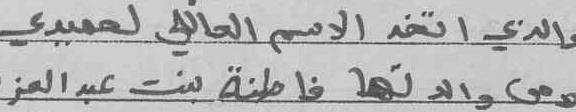 والذي اتخذ الاسم العائلي لحميدي
ومن والدتها فاطنة بنت عبد العز